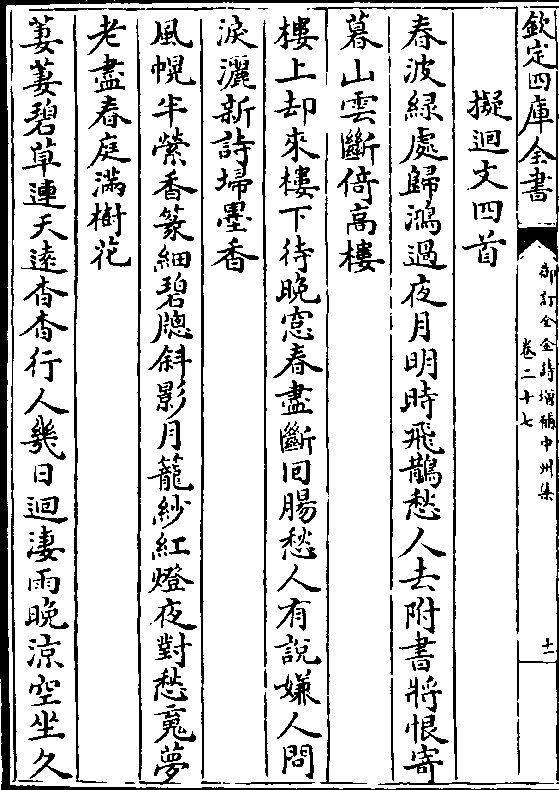 欽定四庫全書
御訂全金詩增補中州集
卷二十七
十一
擬迴文四首
春波緑處歸鴻過夜月明時飛鵲愁人去附書將恨寄
暮山雲斷倚高樓
樓上却來樓下待晚窓春盡斷囘腸愁人有說嫌人問
淚灑新詩埽墨香
風幌半縈香篆細碧牕斜影月籠紗紅燈夜對愁䰟夢
老盡春庭滿樹花
萋萋碧草連天逺杳杳行人幾日迴淒雨晚涼空坐久